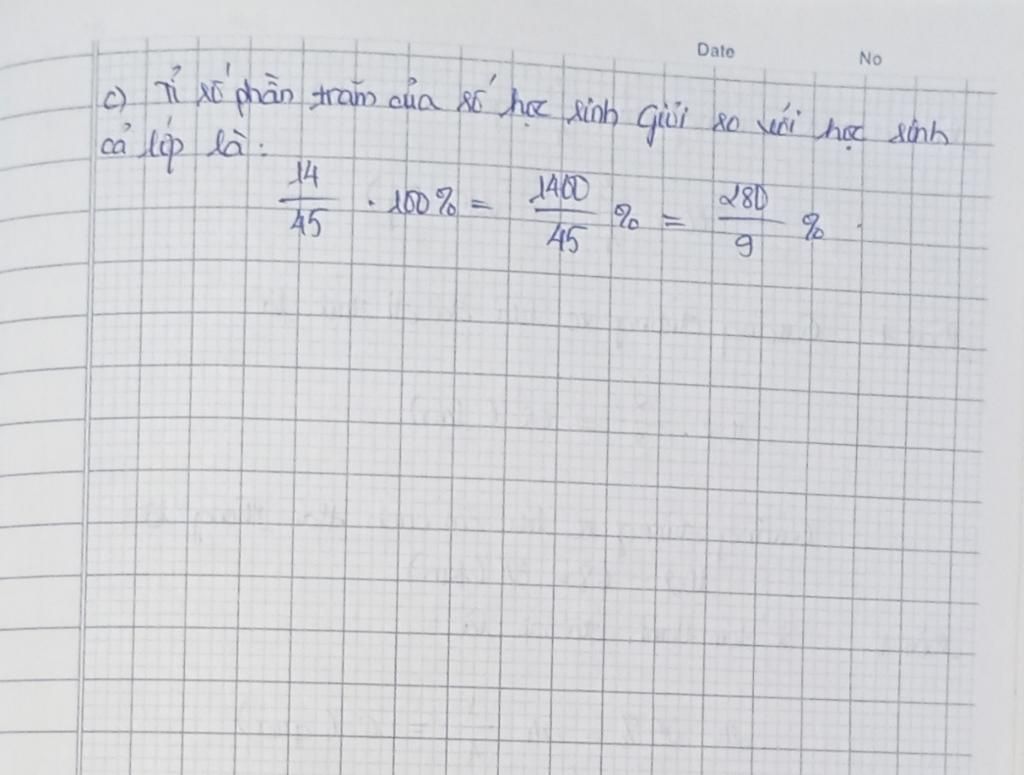 Date No
c) Tỉ số phần trăm của số học sinh giỏi so với học sinh
cả lớp là:
14/45 . 100% = 1400/45 % = 280/9 % .